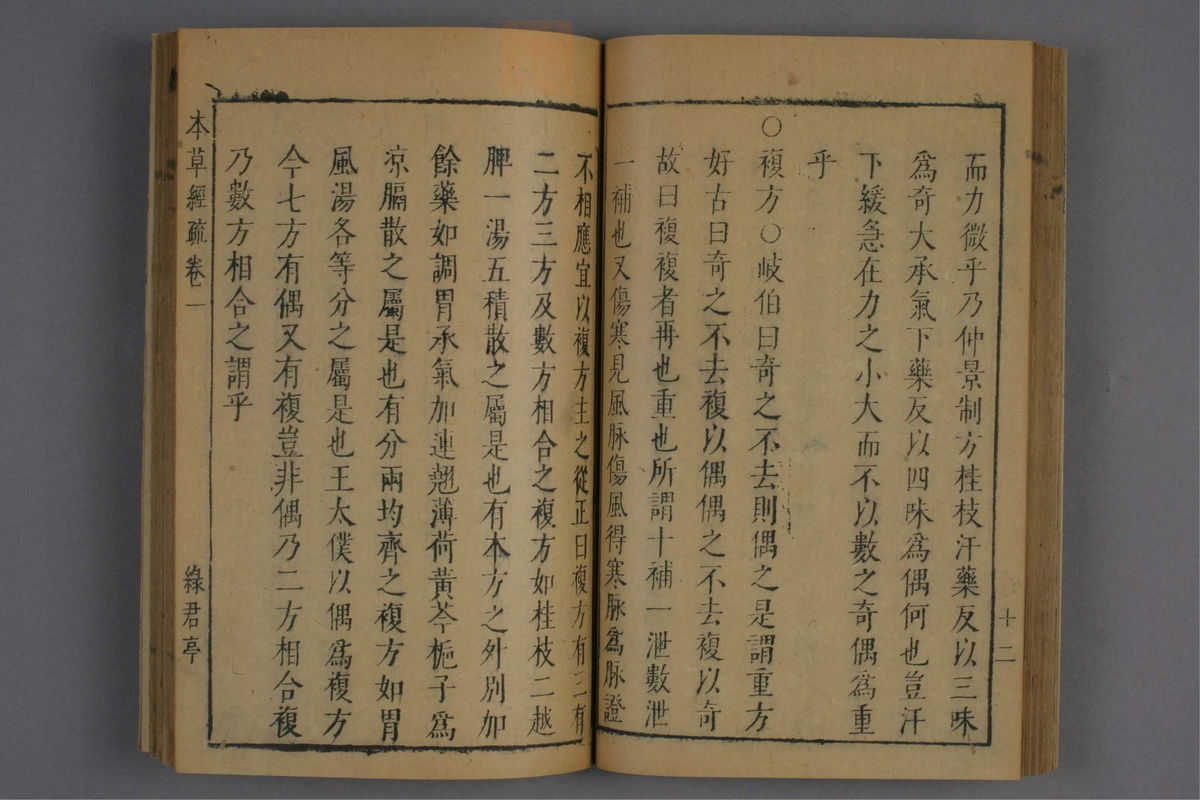 而力微乎乃仲景制方桂枝汗藥反以三味
爲奇大承氣下藥反以四味爲偶何也豈汗
下緩急在力之小大而不以數之奇偶爲重
乎
○複方○岐伯曰奇之不去則偶之是謂重方
好古曰奇之不去複以偶偶之不去複以奇
故曰複複者再也重也所謂十補一泄數泄
一補也又傷寒見風脉傷風得寒脉爲脉證
十二
不相應宜以複方主之從正曰複方有三有
二方三方及數方相合之複方如桂枝二越
脾一湯五積散之屬是也有本方之外別加
餘藥如調胃承氣加連翹薄荷黃芩梔子爲
凉膈散之屬是也有分兩均齊之複方如胃
風湯各等分之屬是也王太僕以偶爲複方
今七方有偶又有複豈非偶乃二方相合複
乃數方相合之謂乎
本草經疏卷一
綠君亭